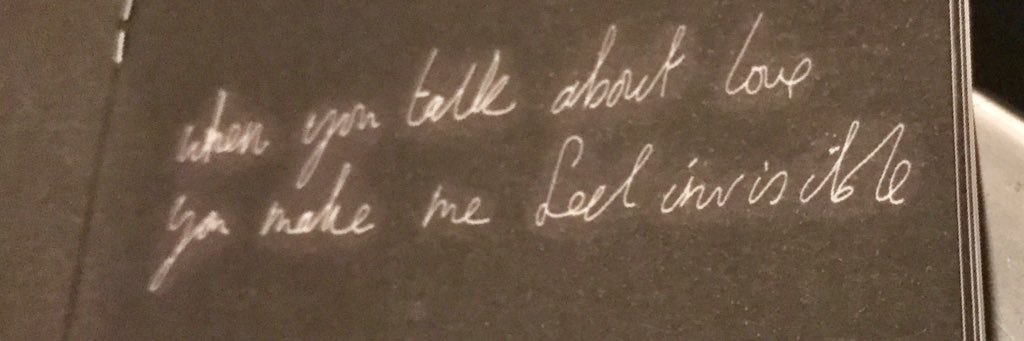 when you talk about love
you make me feel invisible